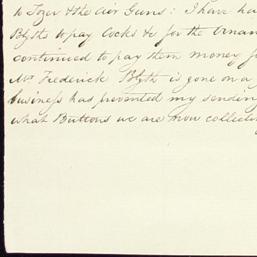 to Tozer & the Air Guns: I have ha
Blyth to pay Cocks & for the Ornam
continued to pay them money f
Mr Frederick Blyth is gone on a
business has prevented my sendin
what Buttons we are now collecto